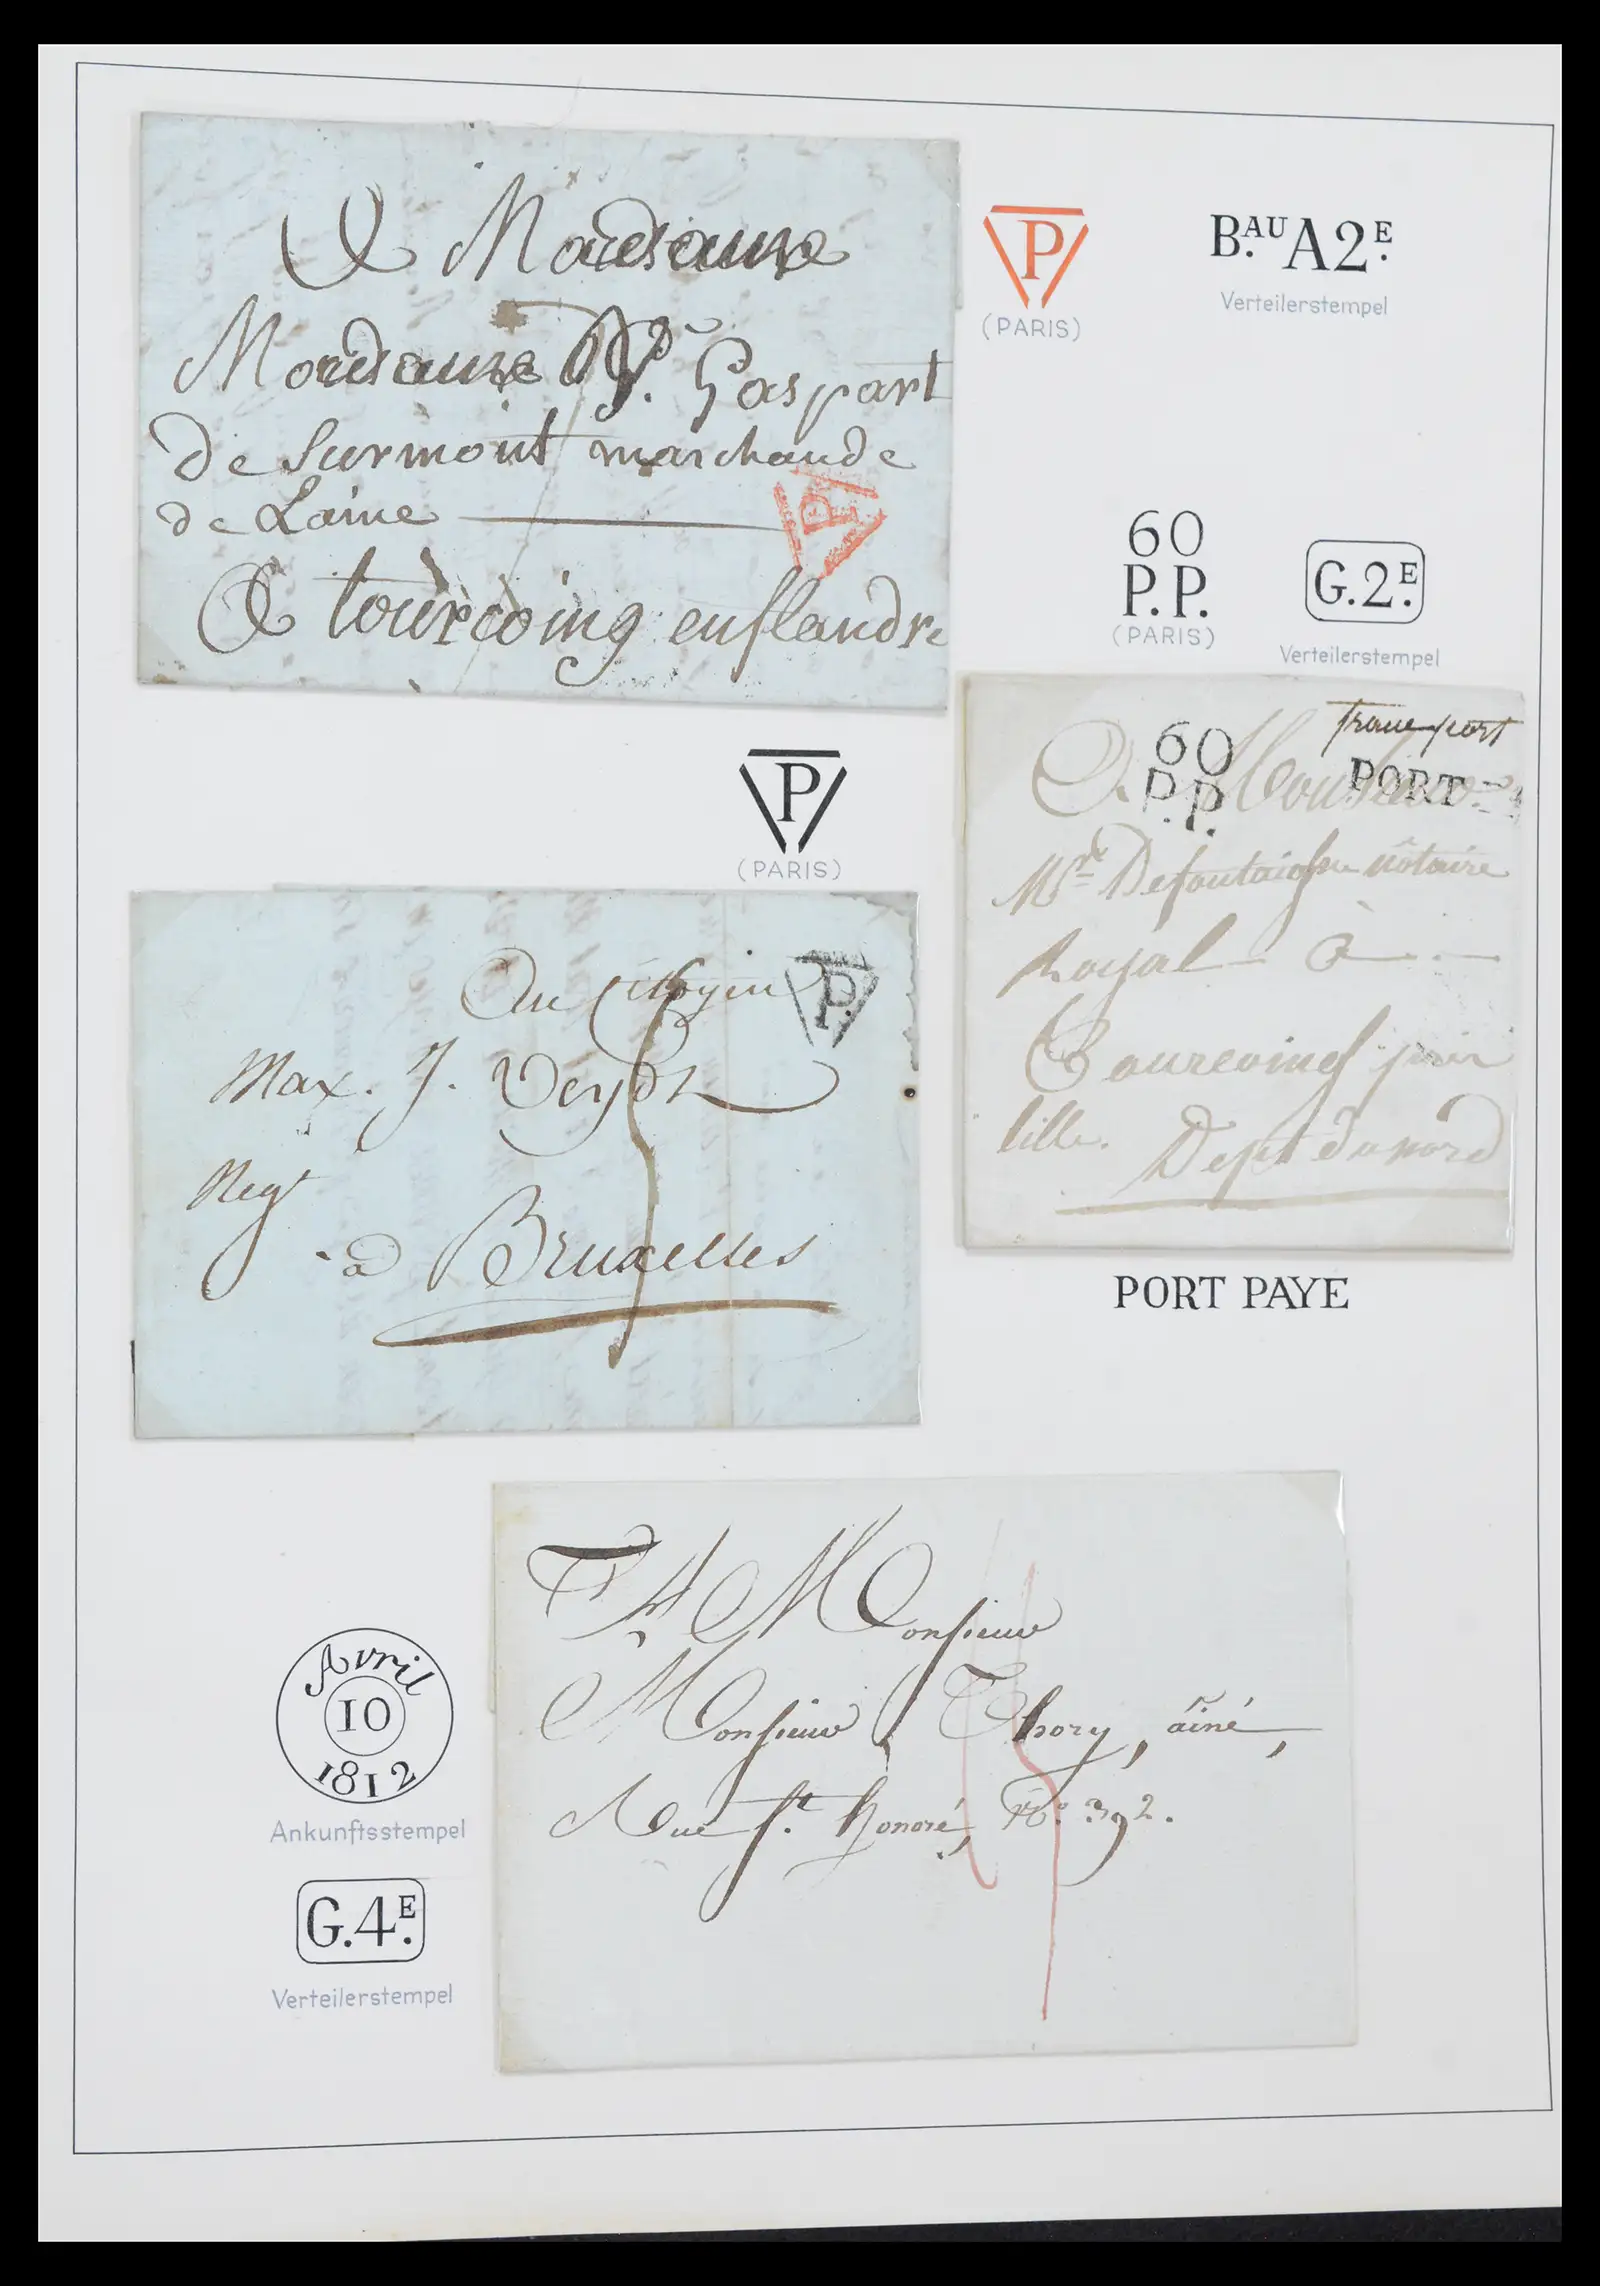 A Madame
Madame Vᵉ. Gaspart
de Surmont marchande
de Laine
A tourcoing enflandre
P
P
(PARIS)
B.ᴬᵁ A2.ᴱ
Verteilerstempel
60
P.P.
(PARIS)
G.2.ᴱ
Verteilerstempel
franc port
60
P.P.
PORT
A Monsieur
notaire
Royal à
pres
lille. Dept du nord
PORT PAYE
P
(PARIS)
Au Citoyen
P.
Max. J.
Negt
à Bruxelles
A Monsieur
Monsieur Thory, ainé,
Rue St. honoré, No. 392.
Avril
10
1812
Ankunftsstempel
G.4.ᴱ
Verteilerstempel